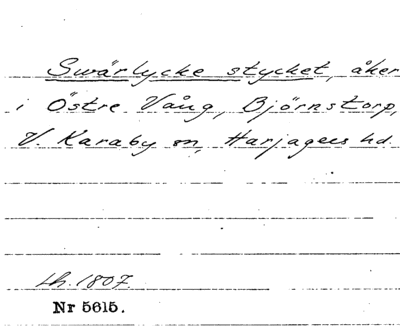 Swärlycke stycket, åker
i Östre Vång, Björnstorp,
V. Karaby sn, Harjagers hd.
Lh. 1807.
Nr 5615.